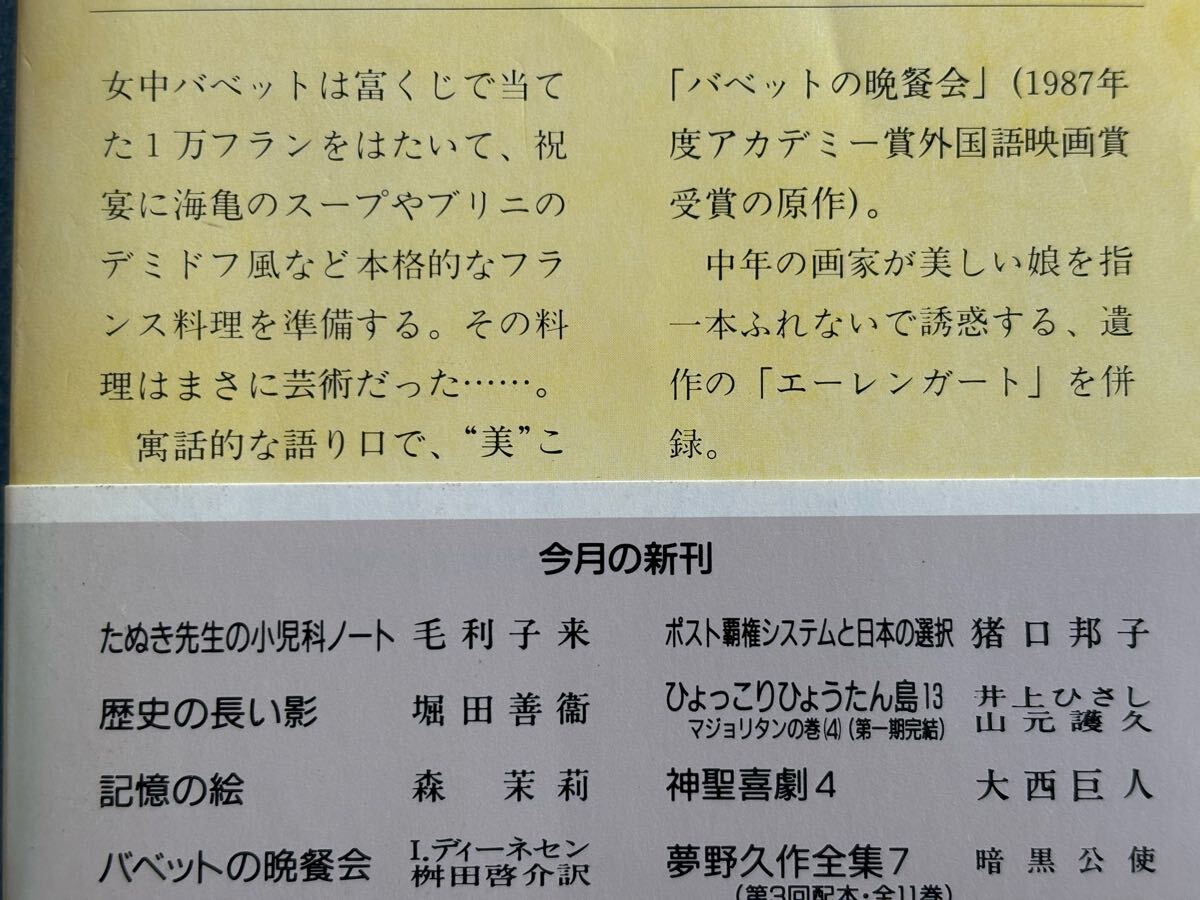 女中バベットは富くじで当て
た1万フランをはたいて、祝
宴に海亀のスープやブリニの
デミドフ風など本格的なフラ
ンス料理を準備する。その料
理はまさに芸術だった……。
寓話的な語り口で、“美”こ
「バベットの晩餐会」(1987年
度アカデミー賞外国語映画賞
受賞の原作)。
中年の画家が美しい娘を指
一本ふれないで誘惑する、遺
作の「エーレンガート」を併
録。
今月の新刊
たぬき先生の小児科ノート 毛利子来
歴史の長い影 堀田善衞
記憶の絵 森茉莉
バベットの晩餐会 I.ディーネセン
桝田啓介訳
ポスト覇権システムと日本の選択 猪口邦子
ひょっこりひょうたん島13 井上ひさし
マジョリタンの巻(4)(第一期完結) 山元護久
神聖喜劇4 大西巨人
夢野久作全集7 暗黒公使
(第3回配本・全11巻)